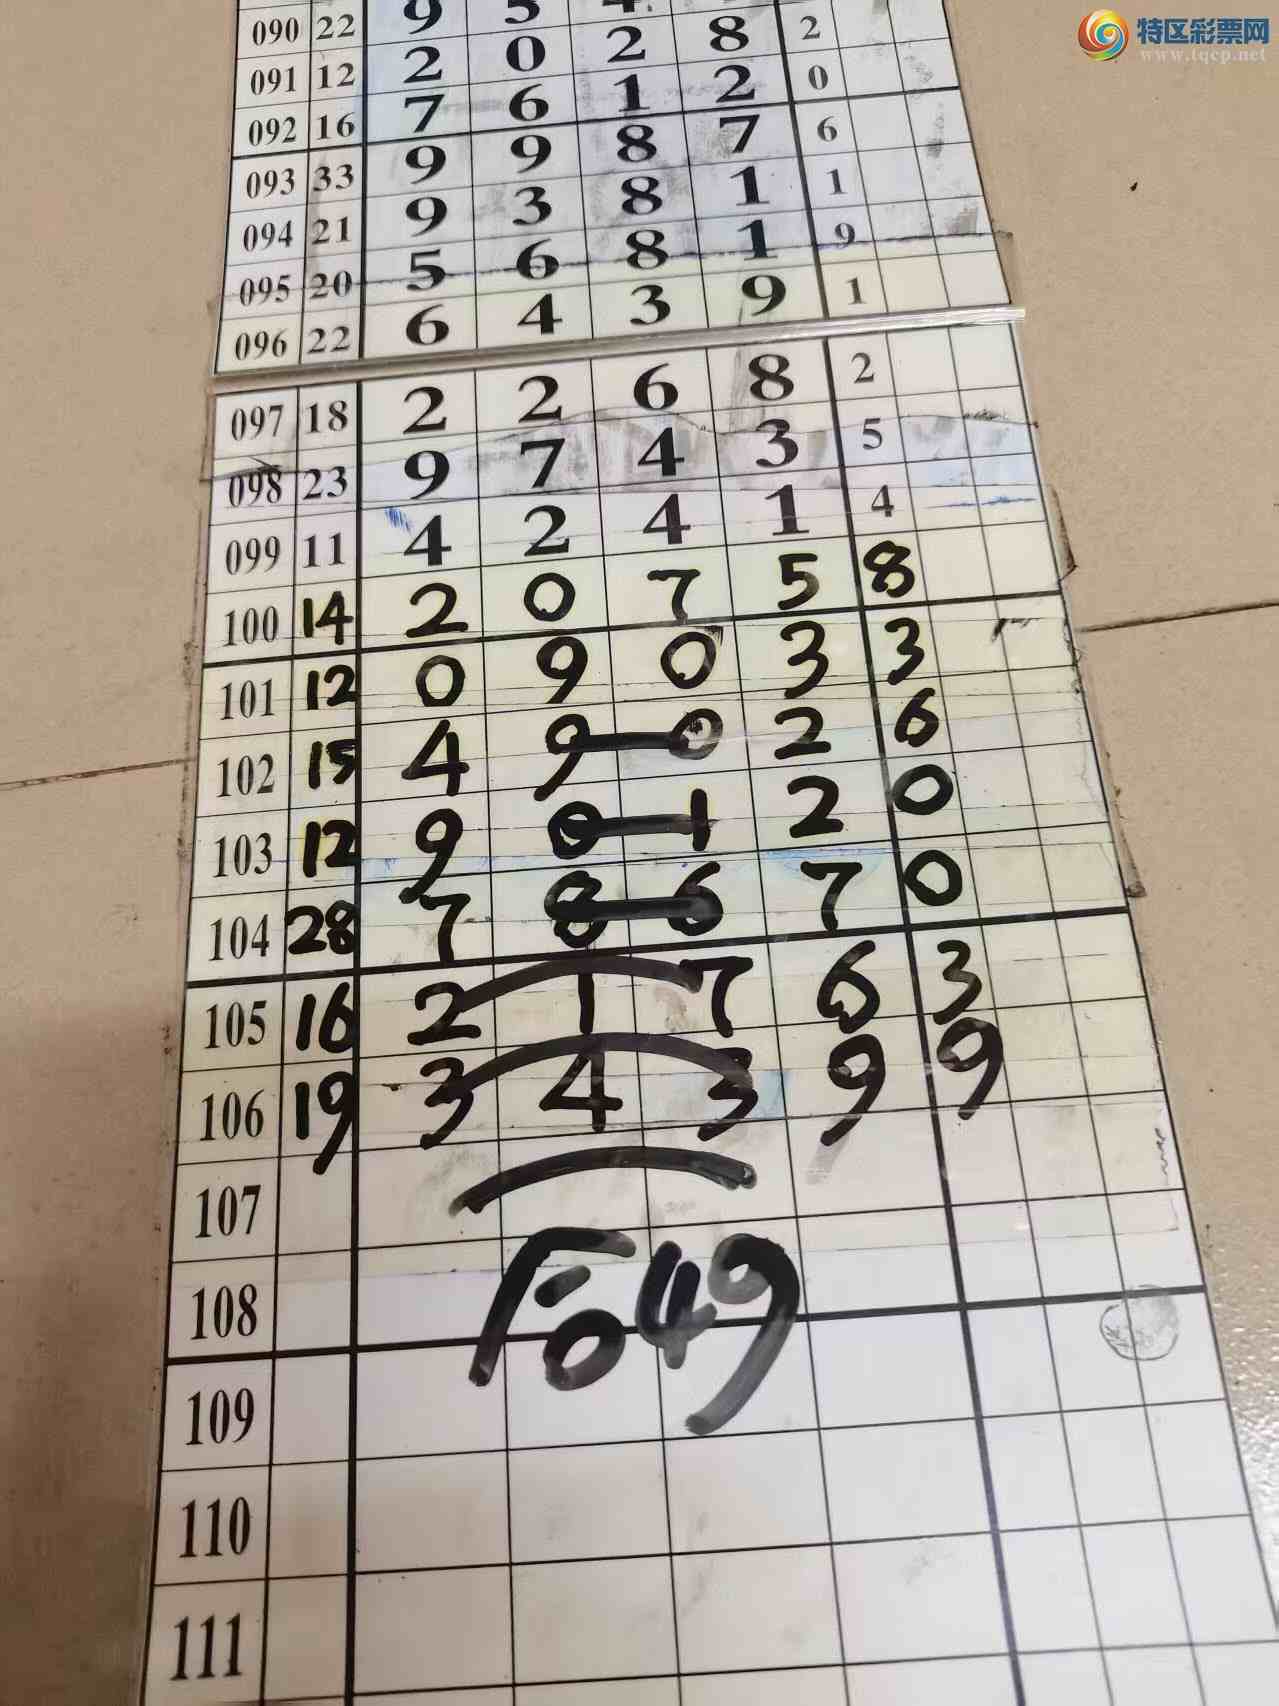 特区彩票网
www.tqcp.net
090 22 9 5 4 2
091 12 2 0 2 8 0
092 16 7 6 1 2 6
093 33 9 9 8 7 1
094 21 9 3 8 1 9
095 20 5 6 8 1 1
096 22 6 4 3 9
097 18 2 2 6 8 2
098 23 9 7 4 3 5
099 11 4 2 4 1 4
100 14 2 0 7 5 8
101 12 0 9 0 3 3
102 15 4 9 0 2 6
103 12 9 0 1 2 0
104 28 7 8 6 7 0
105 16 2 1 7 6 3
106 19 3 4 3 9 9
107
108
049
109
110
111